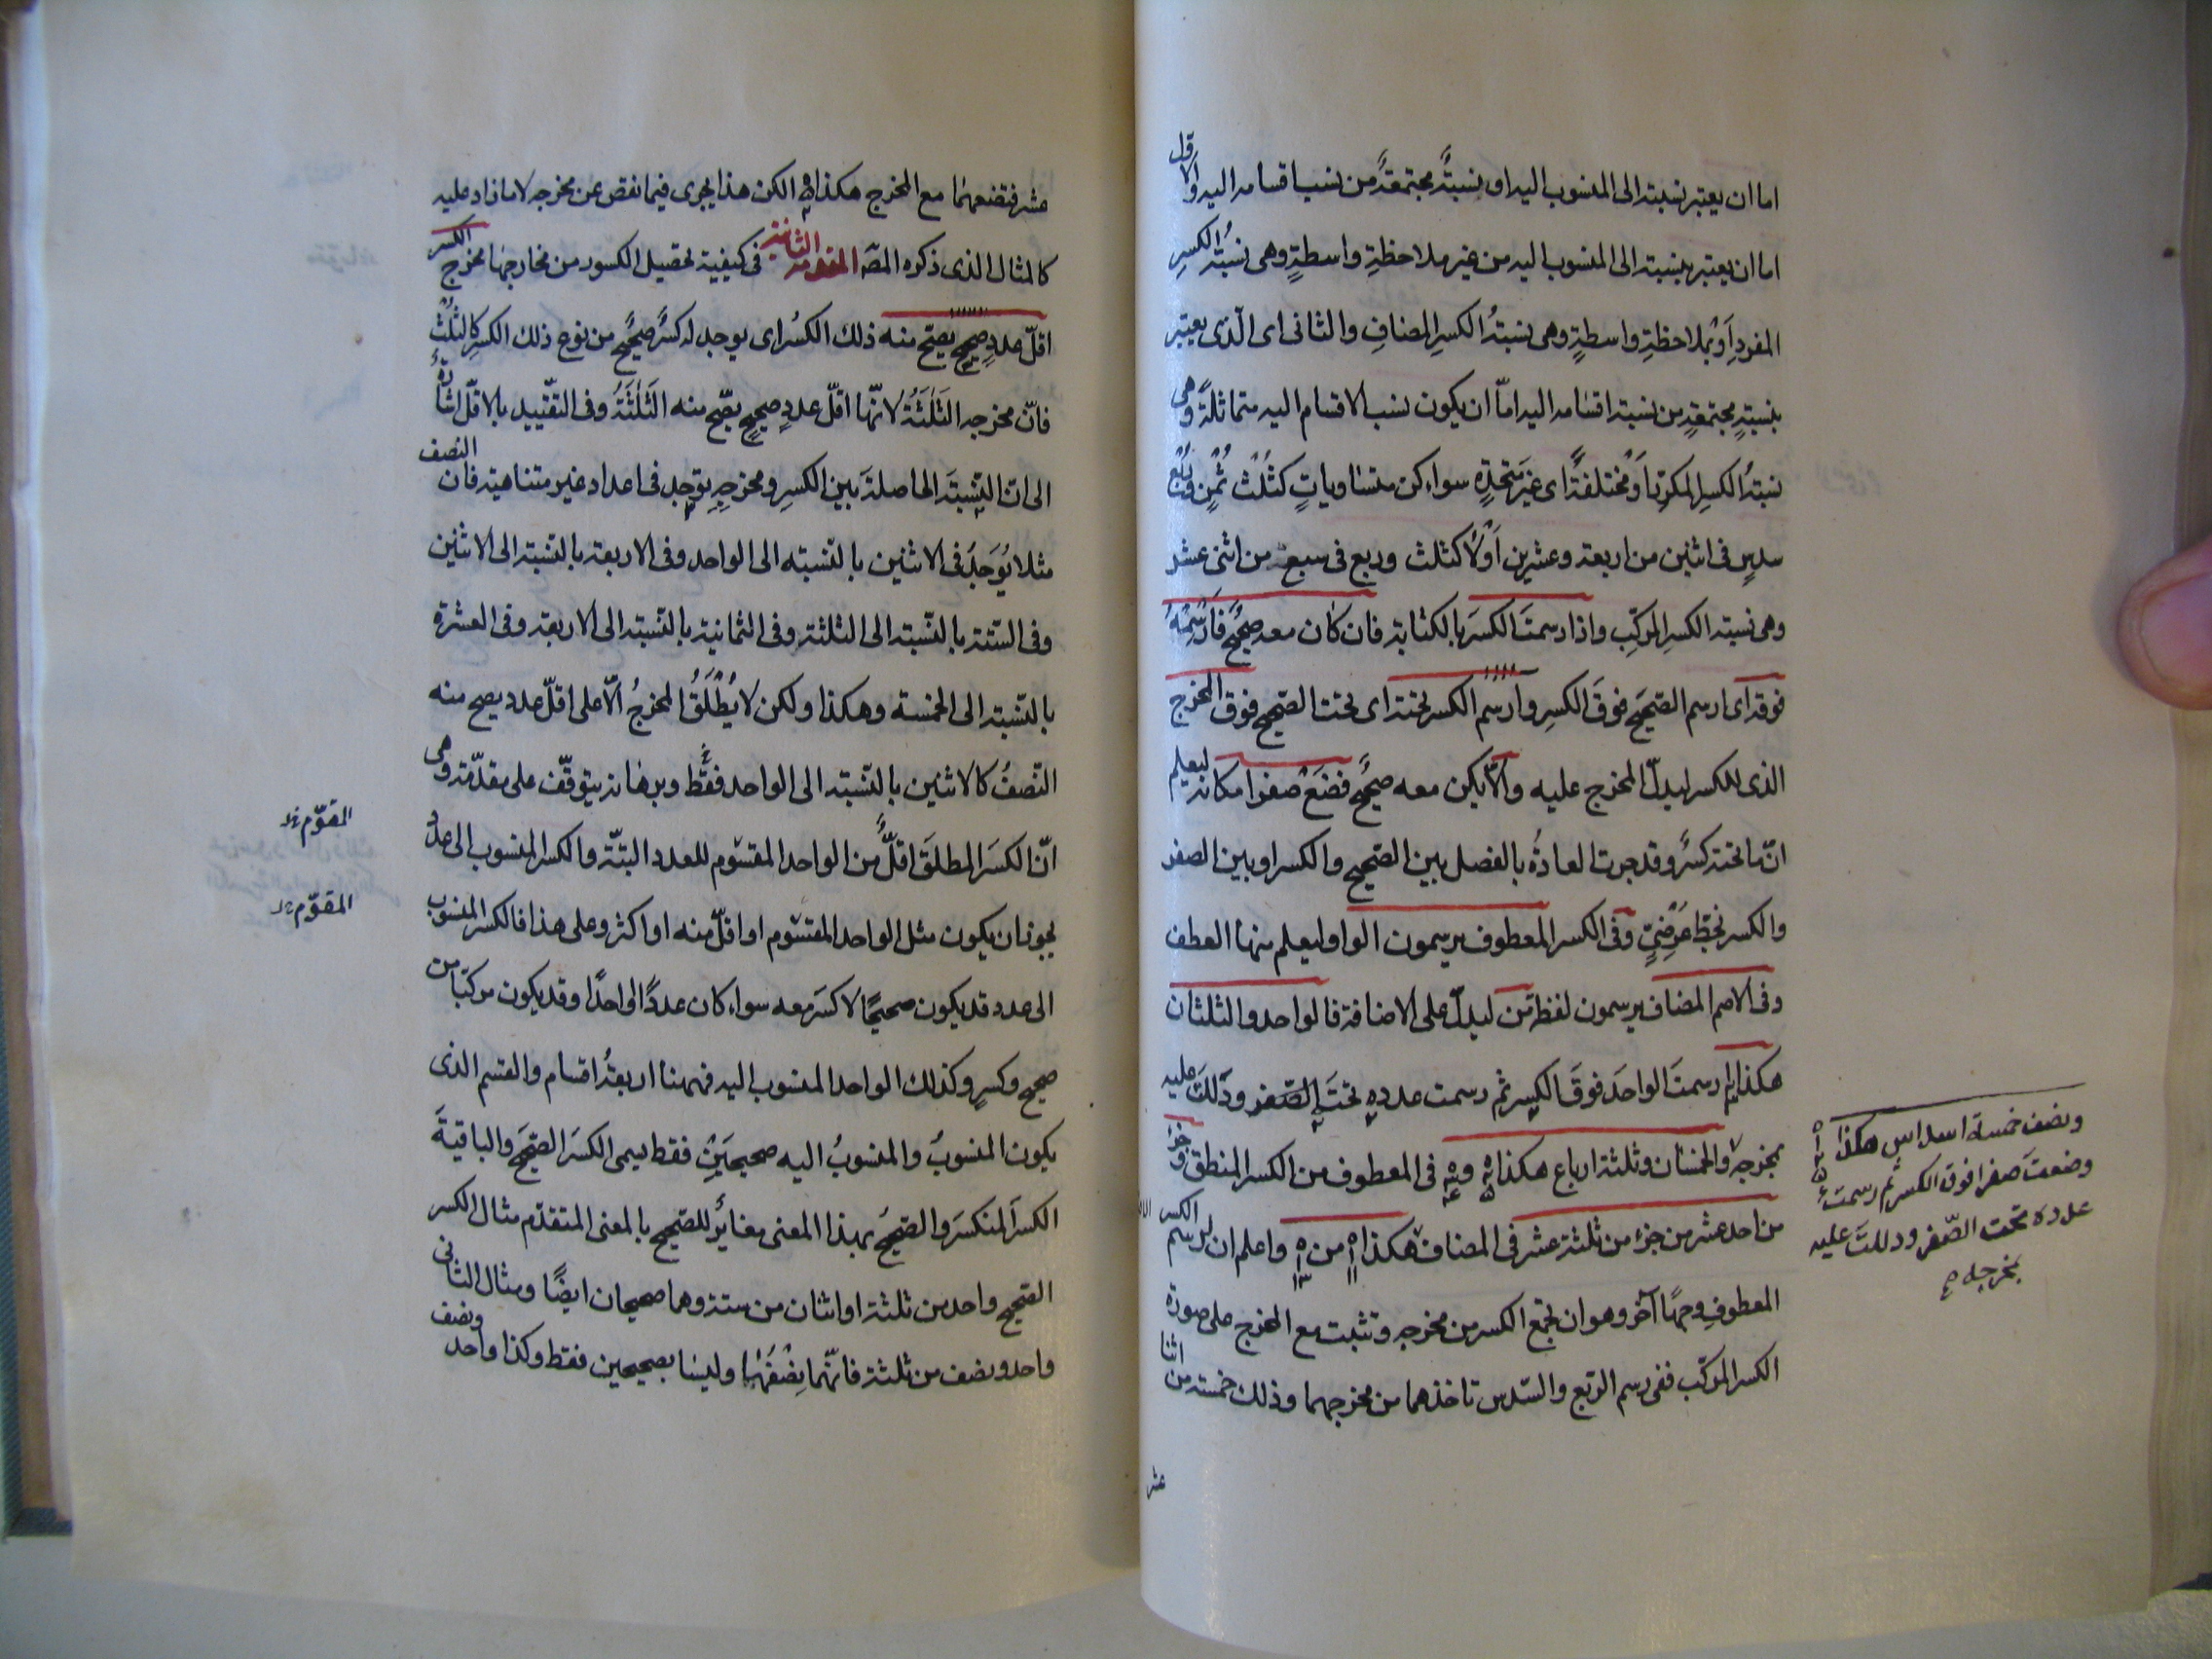 اما ان يعتبر نسبته الى المنسوب اليه او بنسبةٍ مجتمعةٍ من نسب اقسامه اليه والاول
اما ان يعتبر بنسبته الى المنسوب اليه من غير ملاحظةِ واسطةٍ وهى نسبةُ الكسرِ
المفردِ اَوْ بملاحظةِ واسطةٍ وهى نسبةُ الكسرِ المضافِ والثانى اى الّذى يعتبر
بنسبةٍ مجتمعةٍ من نسبة اقسامه اليه امّا ان يكون نسب الاقسام اليه متماثلةً وهى
نسبةُ الكسرِ المكرّر اَوْ مختلفةً اى غيرَ متحّدةٍ سواء كن متساوياتٍ كثُلُث ثُمْنٍ ورُبْع
سدسٍ فى اثنين من اربعة وعشرين اَوْلا كثلث وربع فى سبعة من اثنى عشر
وهى نسبة الكسرِ المركّبِ واذا رسمتَ الكسرَ بالكتابة فان كان معه صحيحٌ فَارْسُمْهُ
فوقه اى ارسم الصّحيحَ فوقَ الكسرِ وارسم الكسر تحته اى تحت الصّحيح فوق المخرج
الذى للكسر ليدلّ المخرج عليه والّا يكن معه صحيحٌ فضَعْ صفرا مكانه ليعلم
انّ ما تحته كسرٌ وقد جرت العادةُ بالفصل بين الصّحيح والكسر او بين الصفر
والكسر بخطٍّ عَرْضىٍّ وفى الكسر المعطوف يرسمون الواو ليعلم منها العطف
وفى الاصم المضاف يرسمون لفظة من ليدلّ على الاضافة فالواحد والثلثان
هكذا رسمتَ الواحدَ فوقَ الكسرِ ثم رسمت عدده تحتَ الصّفر ودَلَلتَ عليه
بمخرجه والخمسان وثلثة ارباع هكذا فى المعطوف من الكسر المنطق وجزء
من احد عشر من جزء من ثلثة عشر فى المضاف هكذا من واعلم ان لرسم الكسر
المعطوفِ وجهًا آخر وهو ان تجمع الكسر من مخرجه وتثبت مع المخرج على صورة
الكسر المركّب ففى رسم الرّبع والسّدس تاخذهما من مخرجهما وذلك خمسة من اثنا
عشر
ونصف خمسة اسداس هكذا
وضعتَ صفرا فوق الكسر ثم رسمت
عدده تحت الصّفر ودللتَ عليه
بمخرجه
عشر فتضعهما مع المخرج هكذا لكن هذا يجرى فيما نقص عن مخرجه لا ما زاد عليه
كالمثال الذى ذكره المصّ المقدمة الثانية فى كيفية تحصيل الكسور من مخارجها مخرج الكسر
اقلّ عددٍ صحيحٍ يصّح منه ذلك الكسُر اى يوجد له كسرٌ صحيحٌ من نوع ذلك الكسرِ كالثلُثِ
فانّ مخرجه الثَلٰثَةُ لانّها اقلّ عددٍ صحيحٍ يصّح منه الثَلٰثَةُ وفى التقّييد بالاقلّ اشارةٌ
الى انّ النّسبةَ الحاصلةَ بين الكسرِ ومخرجِهِ توجد فى اعداد غير متناهية فان النصف
مثلا يُوْجَدُ فى الاثنين بالنّسبته الى الواحد وفى الاربعة بالنّسبة الى الاثنين
وفى الستّة بالنّسبة الى الثلثة وفى الثمانية بالنّسبة الى الاربعة وفى العشرة
بالنّسبة الى الخمسة وهكذا ولكن لا يُطْلَقُ المخرجُ الّا على اقلّ عدد يصح منه
النّصفُ كالاثنين بالنّسبة الى الواحد فقط وبرهانه يتوقّف على مقدّمة وهى
انّ الكسرَ المطلقَ اقلُّ من الواحد المقسّوم للعدد البتّة والكسر المنسوب الى عددٍ
يجوز ان يكون مثل الواحد المقسّوم او اقلّ منه او اكثر وعلى هذا فالكسر المنسوب
الى عدد قد يكون صحيحًا لا كسرَ معه سواء كان عددًا او واحدًا وقد يكون مركبًا من
صحيح وكسرٍ وكذلك الواحد المنسوب اليه فههنا اربعةُ اقسام والقسم الذى
يكون المنسوبُ والمنسوبُ اليه صحيحَيْنِ فقط يسمى الكسرَ الصّحيحَ والباقيةَ
الكسرَ المنكسرَ والصّحيحَ بهذا المعنى مغايرٌ للصّحيح بالمعنى المتقدّم مثال الكسر
الصّحيح واحد من ثلثة او اثنان من ستة وهما صحيحان ايضًا ومثال الثانى
واحد ونصف من ثلثة فانّهما نِصْفُهٰا وليسا بصحيحين فقط وكذا واحد ونصف
المقوّم
المقوّم